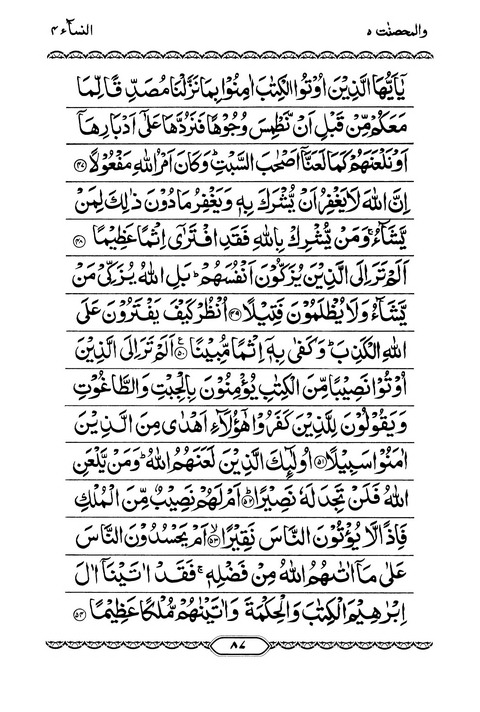 والمحصنٰت ۵ النساۤء ۴
یٰۤاَیُّهَا الَّذِیْنَ اُوْتُوا الْكِتٰبَ اٰمِنُوْا بِمَا نَزَّلْنَا مُصَدِّقًا لِّمَا
مَعَكُمْ مِّنْ قَبْلِ اَنْ نَّطْمِسَ وُجُوْهًا فَنَرُدَّهَا عَلٰۤی اَدْبَارِهَاۤ
اَوْ نَلْعَنَهُمْ كَمَا لَعَنَّاۤ اَصْحٰبَ السَّبْتِ ؕ وَكَانَ اَمْرُ اللّٰهِ مَفْعُوْلًا ﴿۴۷﴾
اِنَّ اللّٰهَ لَا یَغْفِرُ اَنْ یُّشْرَكَ بِهٖ وَیَغْفِرُ مَا دُوْنَ ذٰلِكَ لِمَنْ
یَّشَآءُ ۚ وَمَنْ یُّشْرِكْ بِاللّٰهِ فَقَدِ افْتَرٰۤی اِثْمًا عَظِیْمًا ﴿۴۸﴾
اَلَمْ تَرَ اِلَی الَّذِیْنَ یُزَكُّوْنَ اَنْفُسَهُمْ ؕ بَلِ اللّٰهُ یُزَكِّیْ مَنْ
یَّشَآءُ وَلَا یُظْلَمُوْنَ فَتِیْلًا ﴿۴۹﴾ اُنْظُرْ كَیْفَ یَفْتَرُوْنَ عَلَی
اللّٰهِ الْكَذِبَ ؕ وَكَفٰی بِهٖۤ اِثْمًا مُّبِیْنًا ﴿۵۰﴾ اَلَمْ تَرَ اِلَی الَّذِیْنَ
اُوْتُوْا نَصِیْبًا مِّنَ الْكِتٰبِ یُؤْمِنُوْنَ بِالْجِبْتِ وَالطَّاغُوْتِ
وَیَقُوْلُوْنَ لِلَّذِیْنَ كَفَرُوْا هٰۤؤُلَآءِ اَهْدٰی مِنَ الَّذِیْنَ
اٰمَنُوْا سَبِیْلًا ﴿۵۱﴾ اُولٰٓئِكَ الَّذِیْنَ لَعَنَهُمُ اللّٰهُ ؕ وَمَنْ یَّلْعَنِ
اللّٰهُ فَلَنْ تَجِدَ لَهٗ نَصِیْرًا ﴿۵۲﴾ اَمْ لَهُمْ نَصِیْبٌ مِّنَ الْمُلْكِ
فَاِذًا لَّا یُؤْتُوْنَ النَّاسَ نَقِیْرًا ﴿۵۳﴾ اَمْ یَحْسُدُوْنَ النَّاسَ
عَلٰی مَاۤ اٰتٰىهُمُ اللّٰهُ مِنْ فَضْلِهٖ ۚ فَقَدْ اٰتَیْنَاۤ اٰلَ
اِبْرٰهِیْمَ الْكِتٰبَ وَالْحِكْمَةَ وَاٰتَیْنٰهُمْ مُّلْكًا عَظِیْمًا ﴿۵۴﴾
۸۷